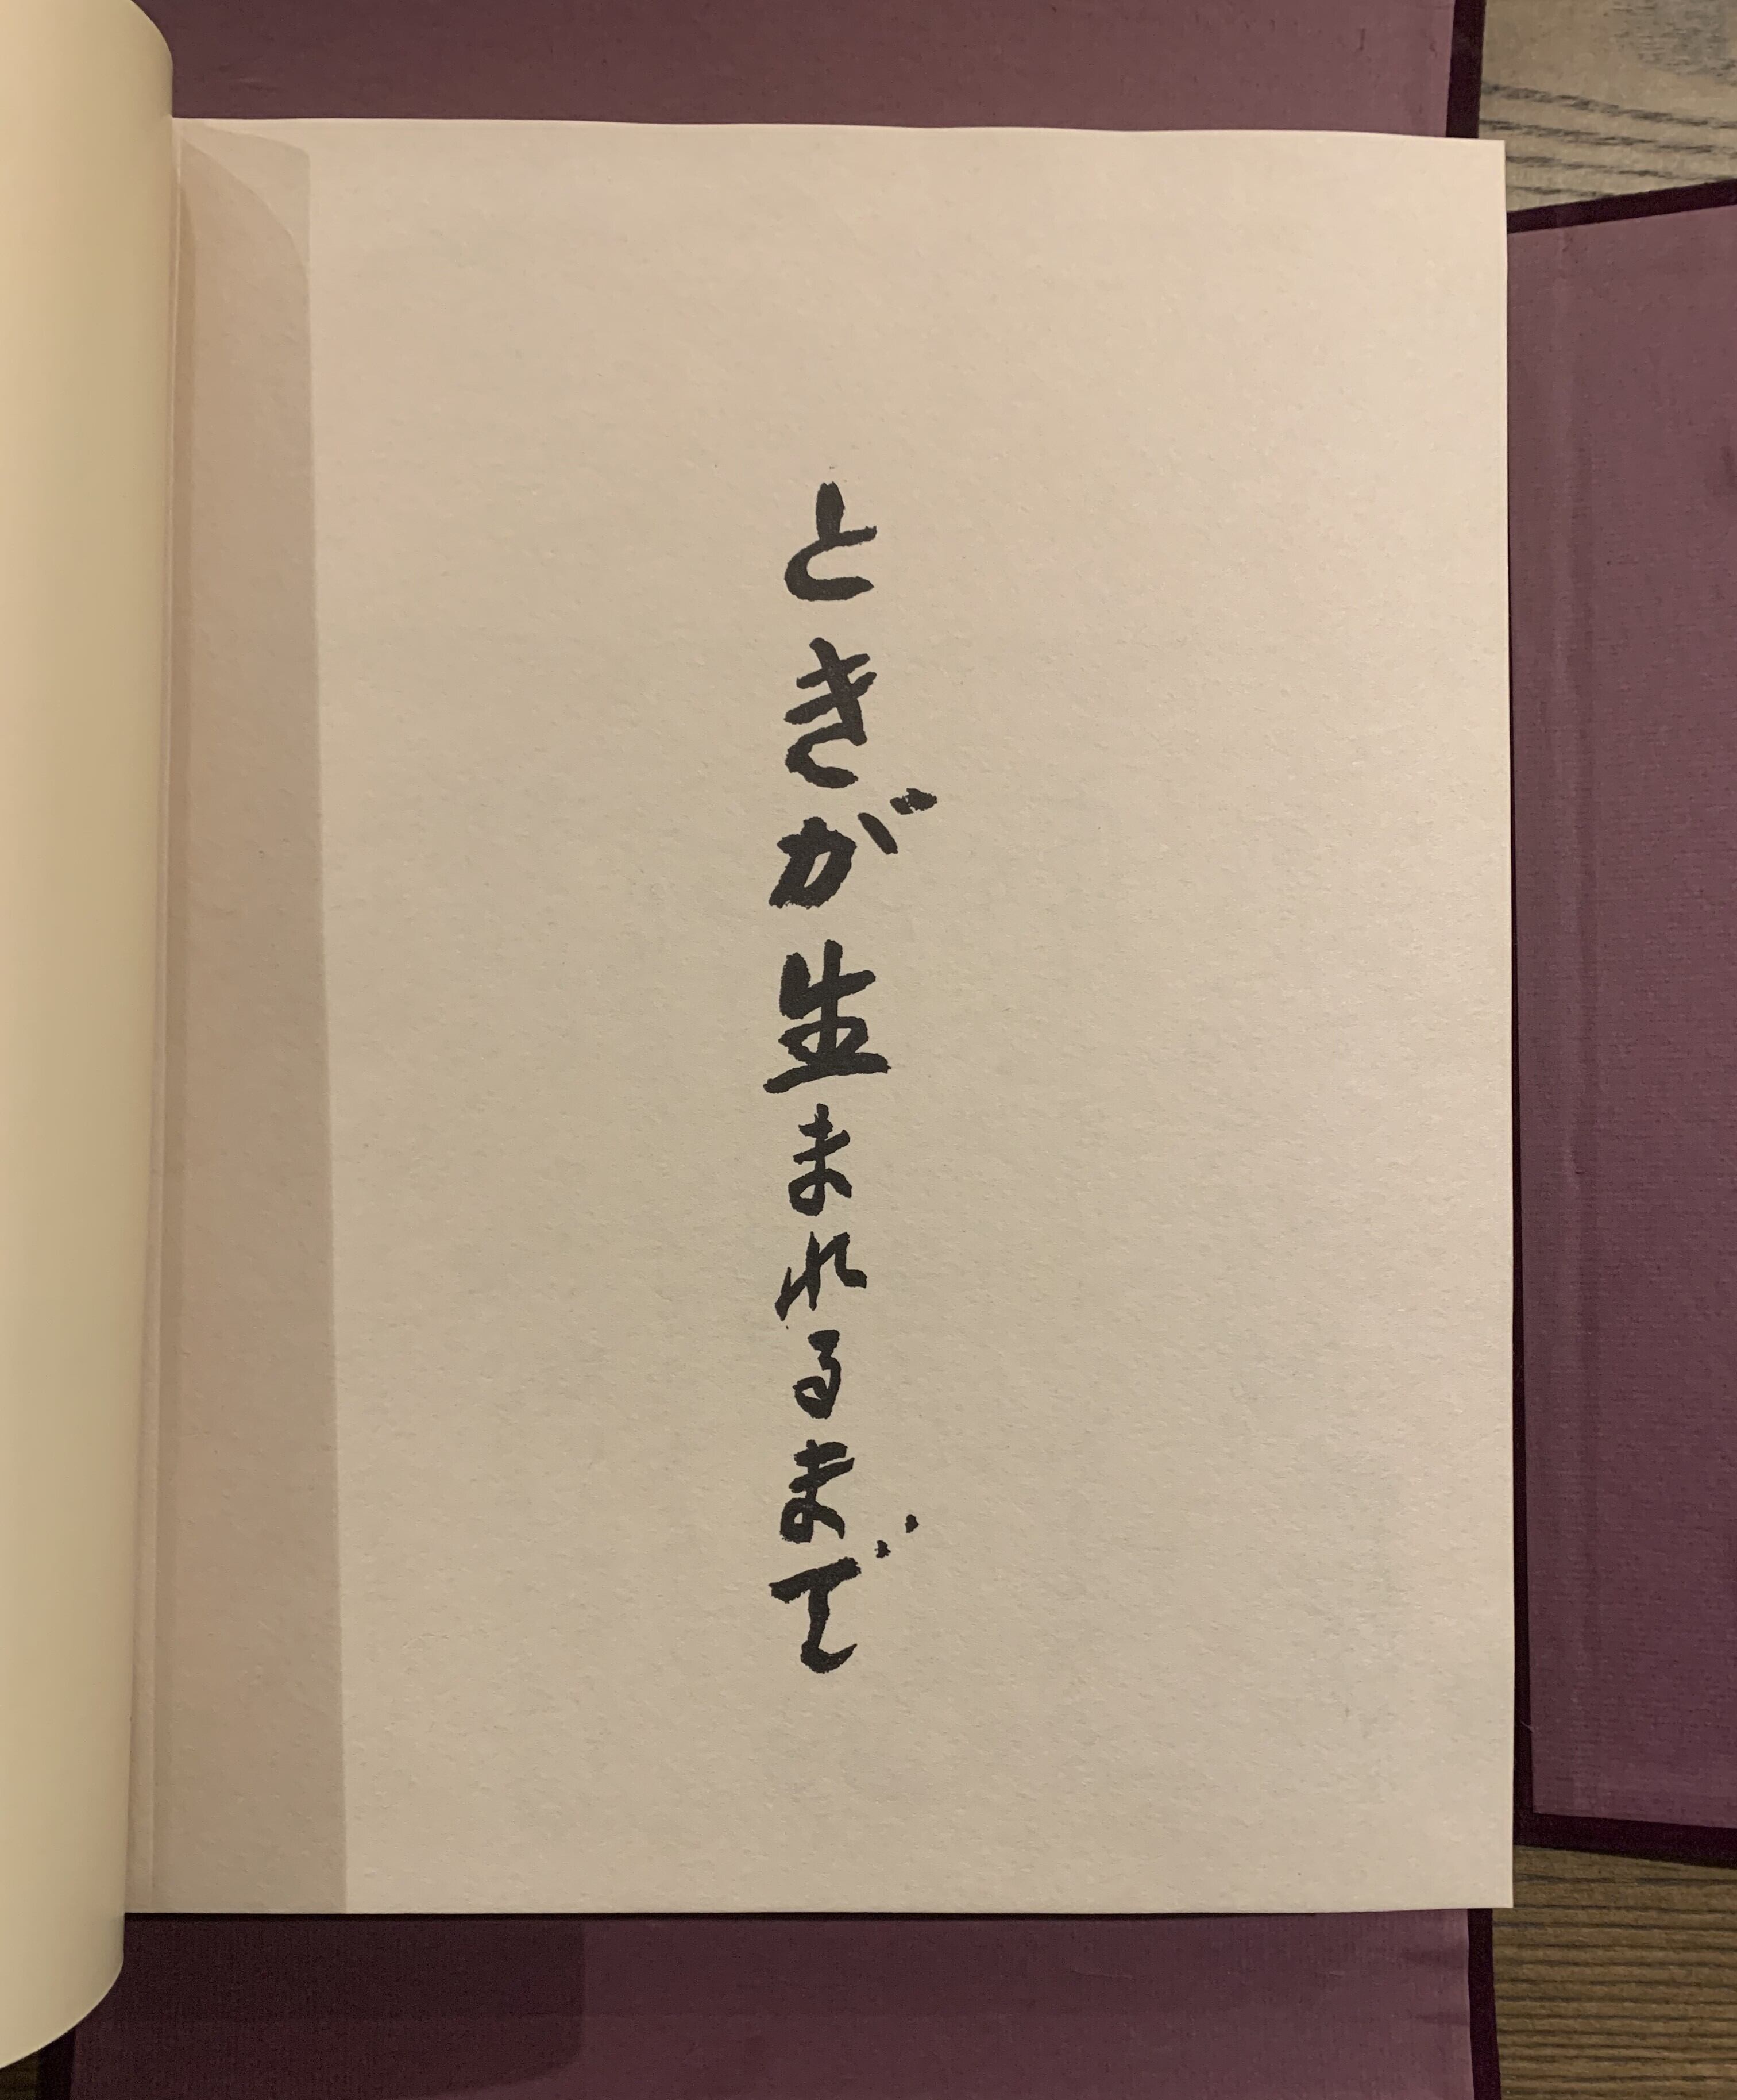 ときが生まれるまで